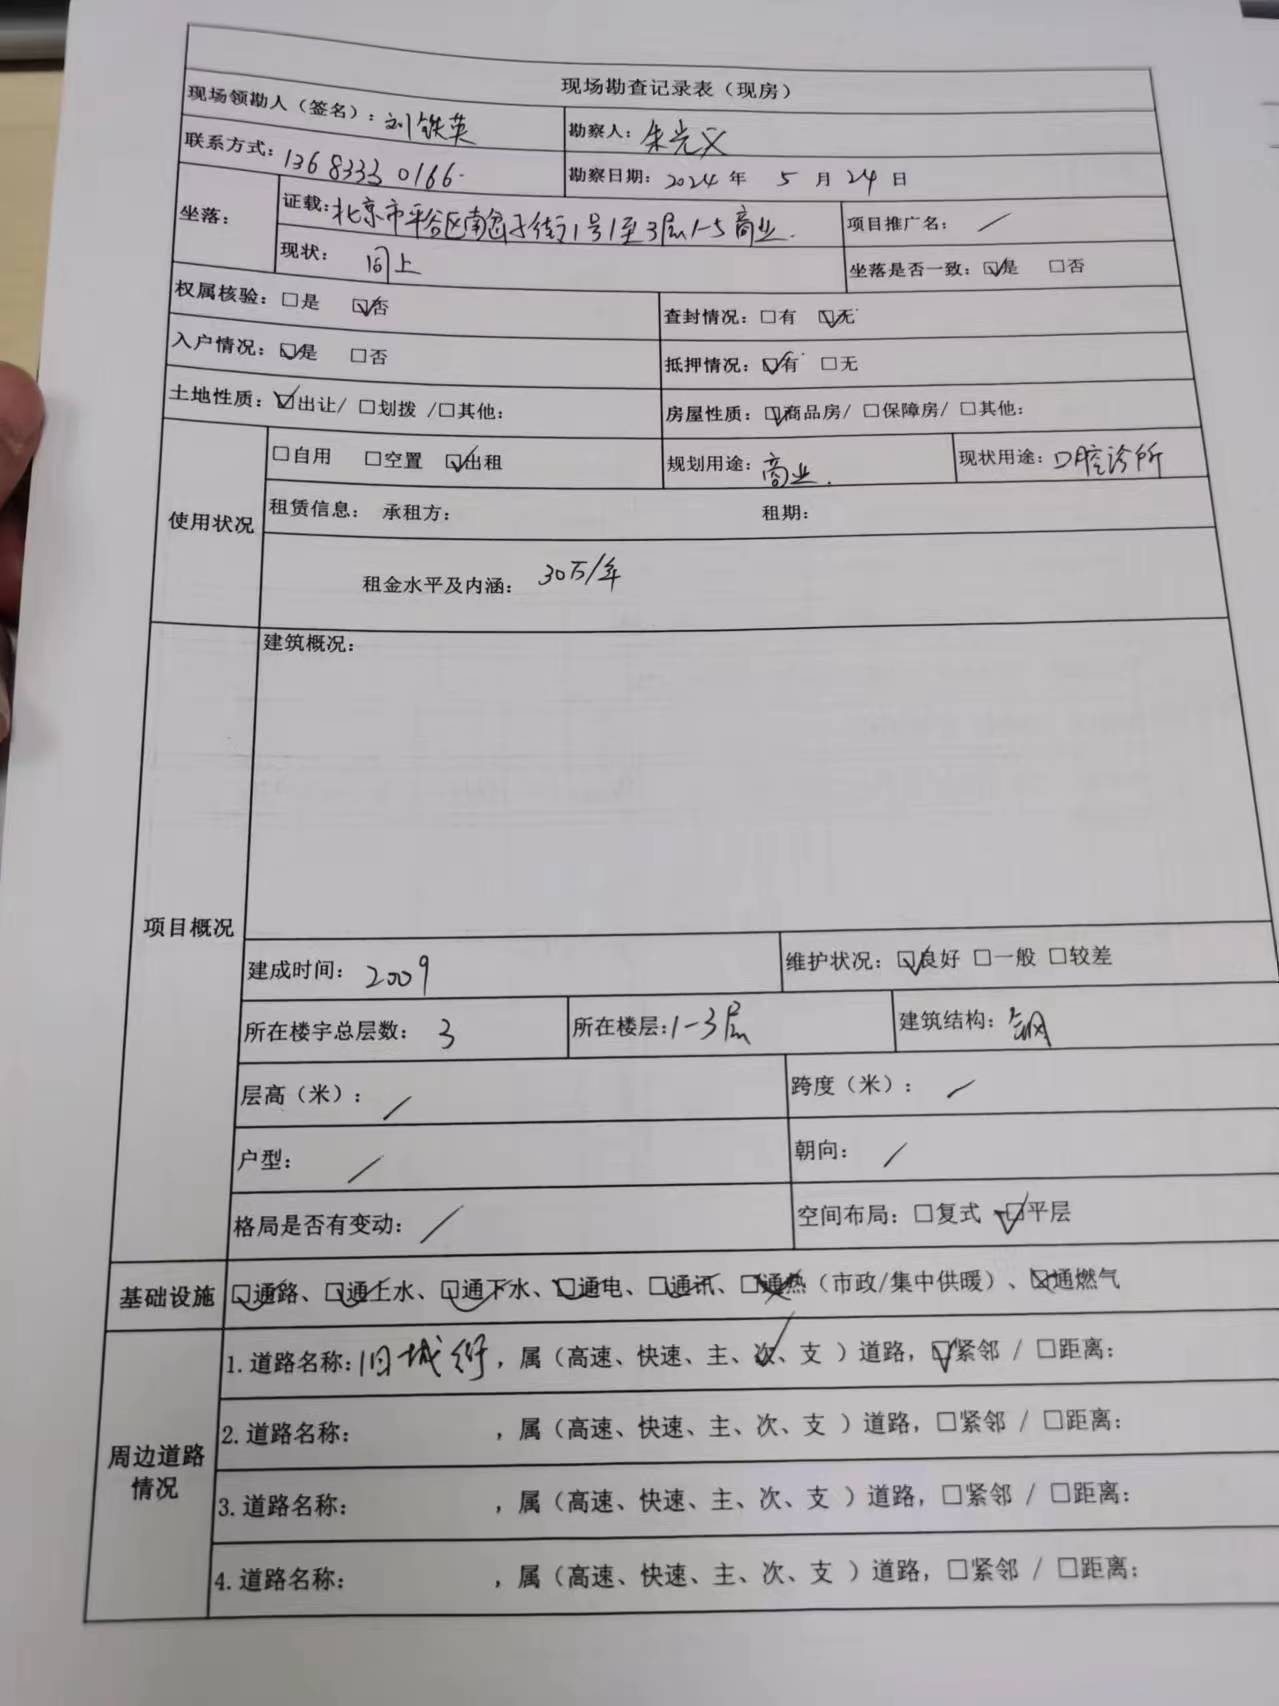 现场勘查记录表（现房）
现场领勘人（签名）：刘铁英 勘察人：朱光义
联系方式：13683330166 勘察日期：2024年 5月24日
坐落： 证载：北京市平谷区南岔子街1号1至3层1-5商业 项目推广名：/
现状：同上 坐落是否一致：☑是 □否
权属核验：□是 ☑否 查封情况：□有 ☑无
入户情况：☑是 □否 抵押情况：☑有 □无
土地性质：☑出让/ □划拨 /□其他： 房屋性质：☑商品房/ □保障房/ □其他：
使用状况 □自用 □空置 ☑出租 规划用途：商业. 现状用途：口腔诊所
租赁信息： 承租方： 租期：
租金水平及内涵：30万/年
项目概况 建筑概况：
建成时间：2009 维护状况：☑良好 □一般 □较差
所在楼宇总层数：3 所在楼层：1-3层 建筑结构：钢
层高（米）：/ 跨度（米）：/
户型：/ 朝向：/
格局是否有变动：/ 空间布局：□复式 ☑平层
基础设施 ☑通路、☑通上水、☑通下水、☑通电、☑通讯、☒通热（市政/集中供暖）、☒通燃气
周边道路情况 1.道路名称：旧城街，属（高速、快速、主、次✓、支 ）道路，☑紧邻 / □距离：
2.道路名称： ，属（高速、快速、主、次、支 ）道路，□紧邻 / □距离：
3.道路名称： ，属（高速、快速、主、次、支 ）道路，□紧邻 / □距离：
4.道路名称： ，属（高速、快速、主、次、支 ）道路，□紧邻 / □距离：